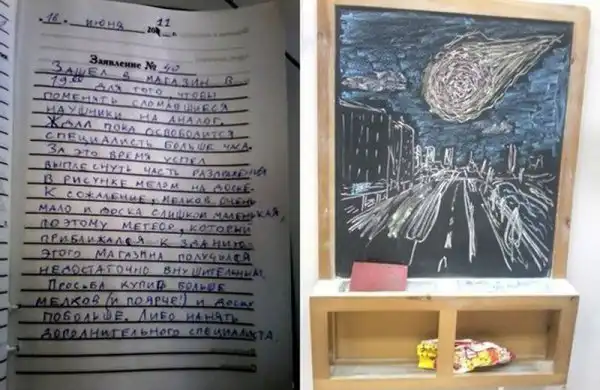 " 18 " июня 2011 г.
Заявление № 40
Зашел в магазин в
19.00 для того чтобы
поменять сломавшиеся
наушники на аналог.
Ждал пока освободится
специалист больше часа.
За это время успел
выплеснуть часть раздражения
в рисунке мелом на доске.
К сожалению, мелков очень
мало и доска слишком маленькая,
поэтому метеор, который
приближался к зданию
этого магазина получился
недостаточно внушительным.
Просьба купить больше
мелков (и поярче!) и доску
побольше. Либо нанять
дополнительного специалиста.